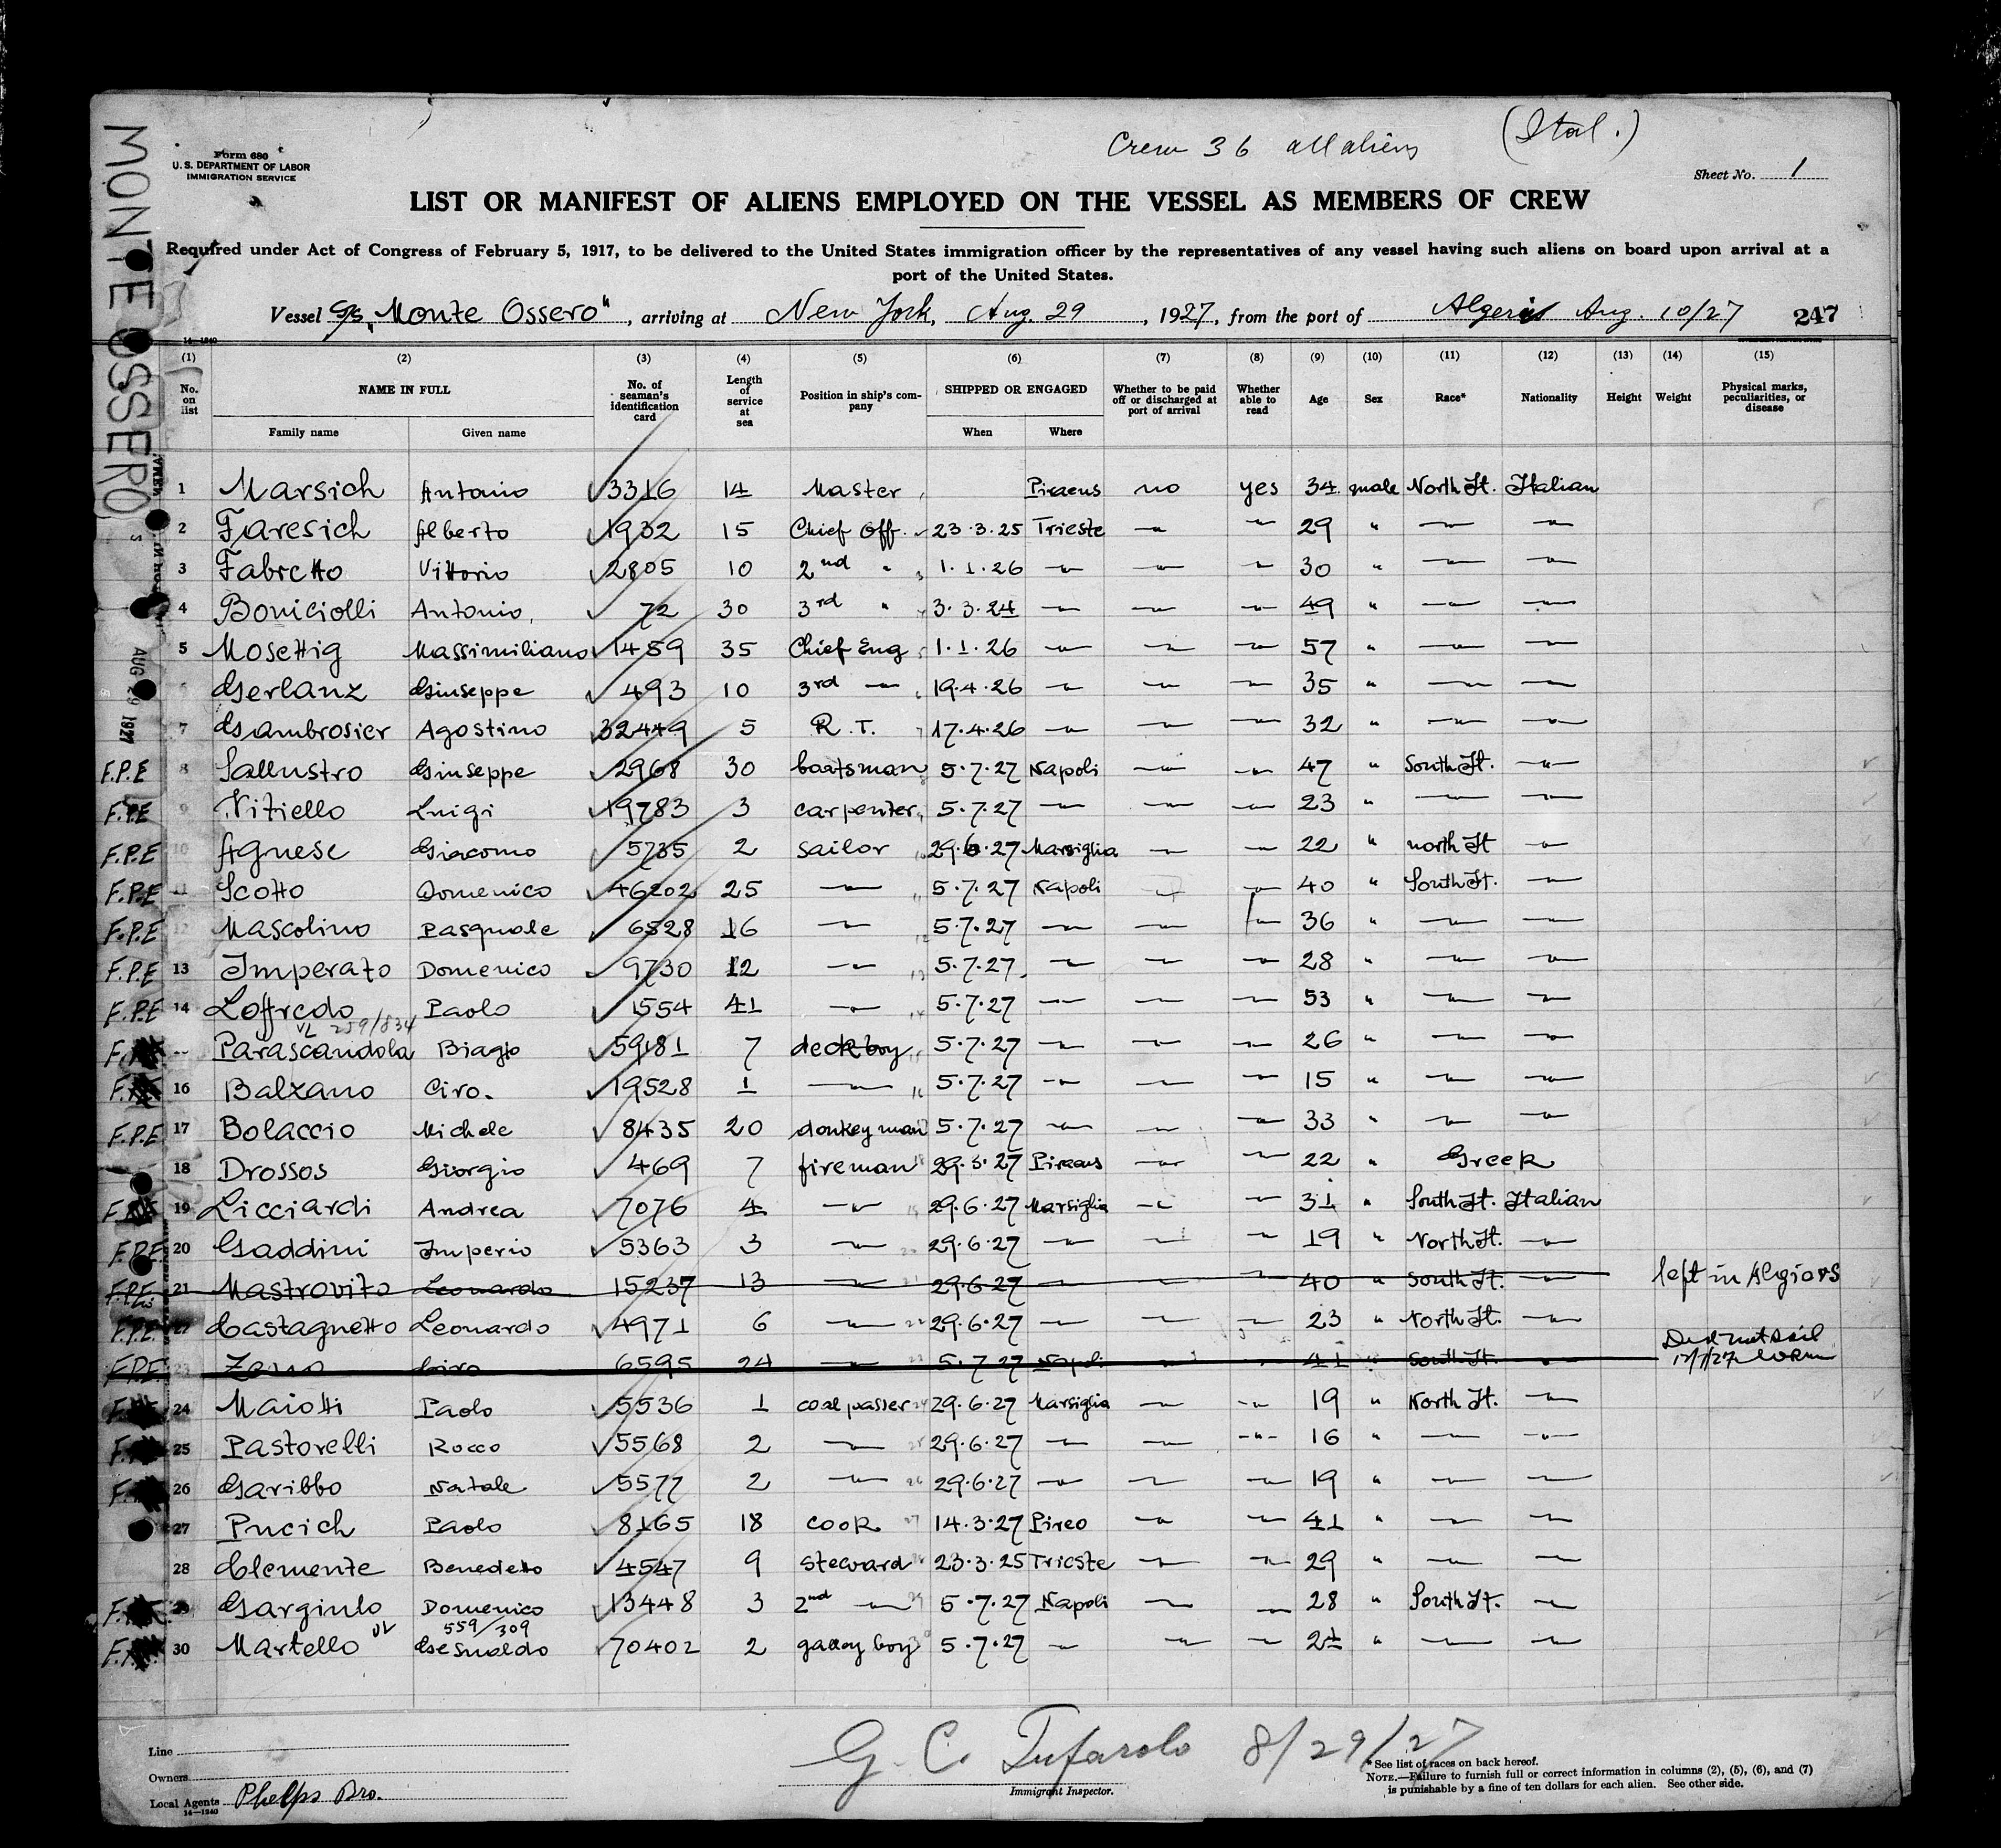 Crew 36 all aliens (Ital.)
Form 680
U. S. DEPARTMENT OF LABOR
IMMIGRATION SERVICE
Sheet No. 1
MONTE OSSERO
AUG 29 1927
LIST OR MANIFEST OF ALIENS EMPLOYED ON THE VESSEL AS MEMBERS OF CREW
Required under Act of Congress of February 5, 1917, to be delivered to the United States immigration officer by the representatives of any vessel having such aliens on board upon arrival at a
port of the United States.
Vessel S/S „Monte Ossero“, arriving at New York, Aug. 29, 1927, from the port of Algeris Aug. 10/27 247
14—1240
(1) (2) (3) (4) (5) (6) (7) (8) (9) (10) (11) (12) (13) (14) (15)
No. on list NAME IN FULL No. of seaman's identification card Length of service at sea Position in ship's company SHIPPED OR ENGAGED Whether to be paid off or discharged at port of arrival Whether able to read Age Sex Race* Nationality Height Weight Physical marks, peculiarities, or disease
Family name Given name When Where
1 Marsich Antonio √3316 14 Master Piraeus no yes 34 male North It. Italian
2 Faresich Alberto √1932 15 Chief Off. 23.3.25 Trieste — — 29 " — —
3 Fabretto Vittorio √2805 10 2nd " 1.1.26 — — — 30 " — —
4 Boniciolli Antonio, √72 30 3rd " 3.3.24 — — — 49 " — —
5 Mosettig Massimiliano √1459 35 Chief Eng 1.1.26 — — — 57 " — —
6 Gerlanz Giuseppe √493 10 3rd — 19.4.26 — — — 35 " — —
7 Gambrosier Agostino √32449 5 R.T. 17.4.26 — — — 32 " — —
F.P.E 8 Sallustro Giuseppe √2968 30 boatsman 5.7.27 Napoli — — 47 " South It. —
F.P.E 9 Vitiello Luigi √19783 3 carpenter 5.7.27 — — — 23 " — —
F.P.E 10 Agnese Giacomo √5735 2 sailor 29.6.27 Marsiglia — — 22 " north It —
F.P.E 11 Scotto Domenico √46202 25 — 5.7.27 Napoli — — 40 " South It. —
F.P.E 12 Mascolino Pasquale √6528 16 — 5.7.27 — — — 36 " — —
F.P.E 13 Imperato Domenico √9730 12 — 5.7.27 — — — 28 " — —
F.P.E 14 Loffredo Paolo √1554 41 — 5.7.27 — — — 53 " — —
VL 259/834
Parascandola Biagio √59181 7 deckboy 5.7.27 — — — 26 " — —
16 Balzano Ciro. √19528 1 — 5.7.27 — — — 15 " — —
F.P.E 17 Bolaccio Michele √8435 20 donkeyman 5.7.27 — — — 33 " — —
18 Drossos Giorgio √469 7 fireman 29.3.27 Piraeus — — 22 " Greek
19 Licciardi Andrea √7076 4 — 29.6.27 Marsiglia — — 31 " South It. Italian
F.P.E. 20 Gaddini Imperio √5363 3 — 29.6.27 — — — 19 " North It. —
F.P.E. 21 Mastrovito Leonardo 15237 13 — 29.6.27 — — — 40 " South It. — left in Algiers
F.P.E. 22 Castagnetto Leonardo √4971 6 — 29.6.27 — — — 23 " North It. —
F.P.E. 23 Zeno Ciro 6595 24 — 5.7.27 Napoli — — 41 " South It. — Did not sail
24 Maiotti Paolo √5536 1 coal passer 29.6.27 Marsiglia — — 19 " North It. —
25 Pastorelli Rocco √5568 2 — 29.6.27 — — — 16 " — —
26 Garibbo Natale √5577 2 — 29.6.27 — — — 19 " — —
27 Pucich Paolo √8165 18 cook 14.3.27 Pireo — — 41 " — —
28 Clemente Benedetto √4547 9 steward 23.3.25 Trieste — — 29 " — —
29 Gargiulo Domenico √13448 3 2nd — 5.7.27 Napoli — — 28 " South It. —
VL 559/309
30 Martello Gesualdo √70402 2 galley boy 5.7.27 — — — 21 " — —
G. C. Tufarolo 8/29/27
Immigrant Inspector.
Line
Owners
Local Agents Phelps Bro.
14—1240
*See list of races on back hereof.
NOTE.—Failure to furnish full or correct information in columns (2), (5), (6), and (7)
is punishable by a fine of ten dollars for each alien. See other side.